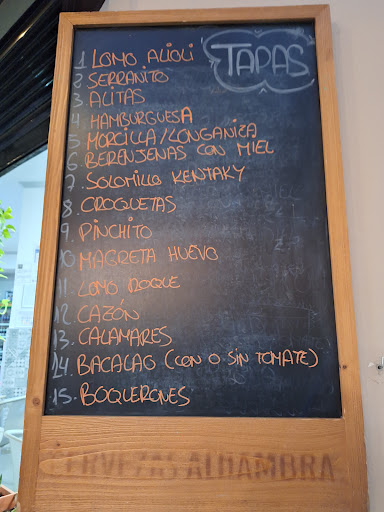 TAPAS
1 LOMO ALIOLI
2 SERRANITO
3 ALITAS
4 HAMBURGUESA
5 MORCILLA/LONGANIZA
6 BERENJENAS CON MIEL
7. SOLOMILLO KENTAKY
8. CROQUETAS
9. PINCHITO
10 MAGRETA HUEVO
11 LOMO ROQUE
12 CAZÓN
13. CALAMARES
14. BACALAO (CON O SIN TOMATE)
15. BOQUERONES
CERVEZAS ALHAMBRA